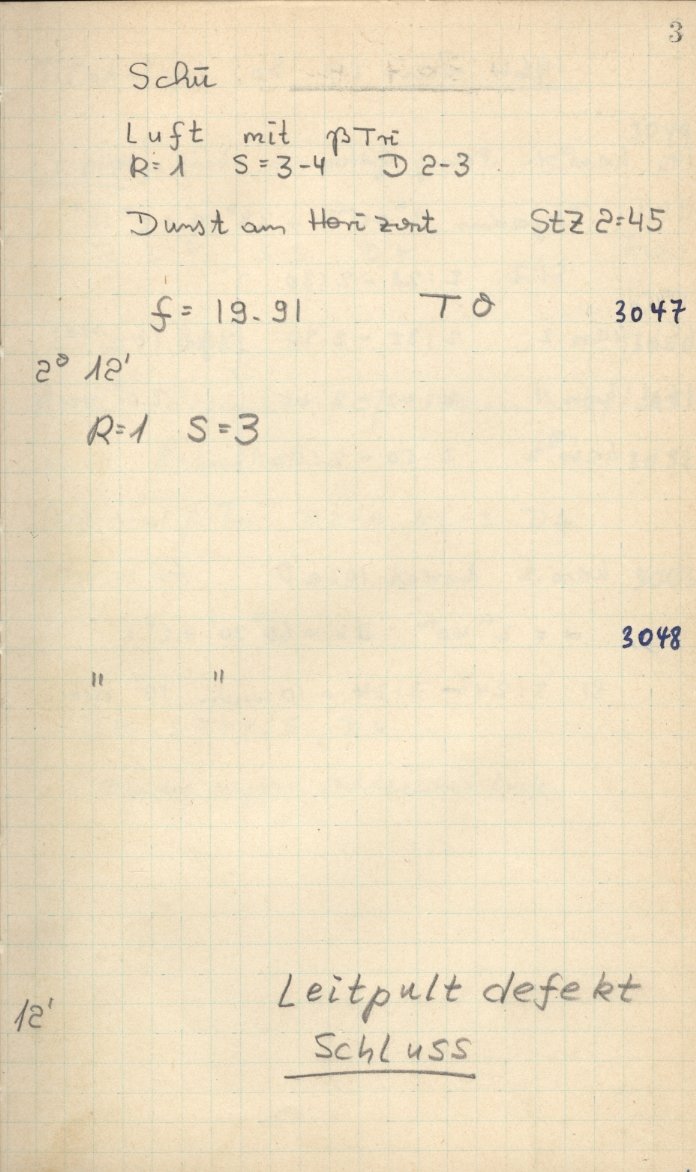 3
Schü
Luft mit βTri
R=1 S=3-4 D 2-3
Dunst am Horizont StZ 2:45
f= 19.91 TO 3047
2° 12'
R=1 S=3
3048
" "
Leitpult defekt
12'
Schluss